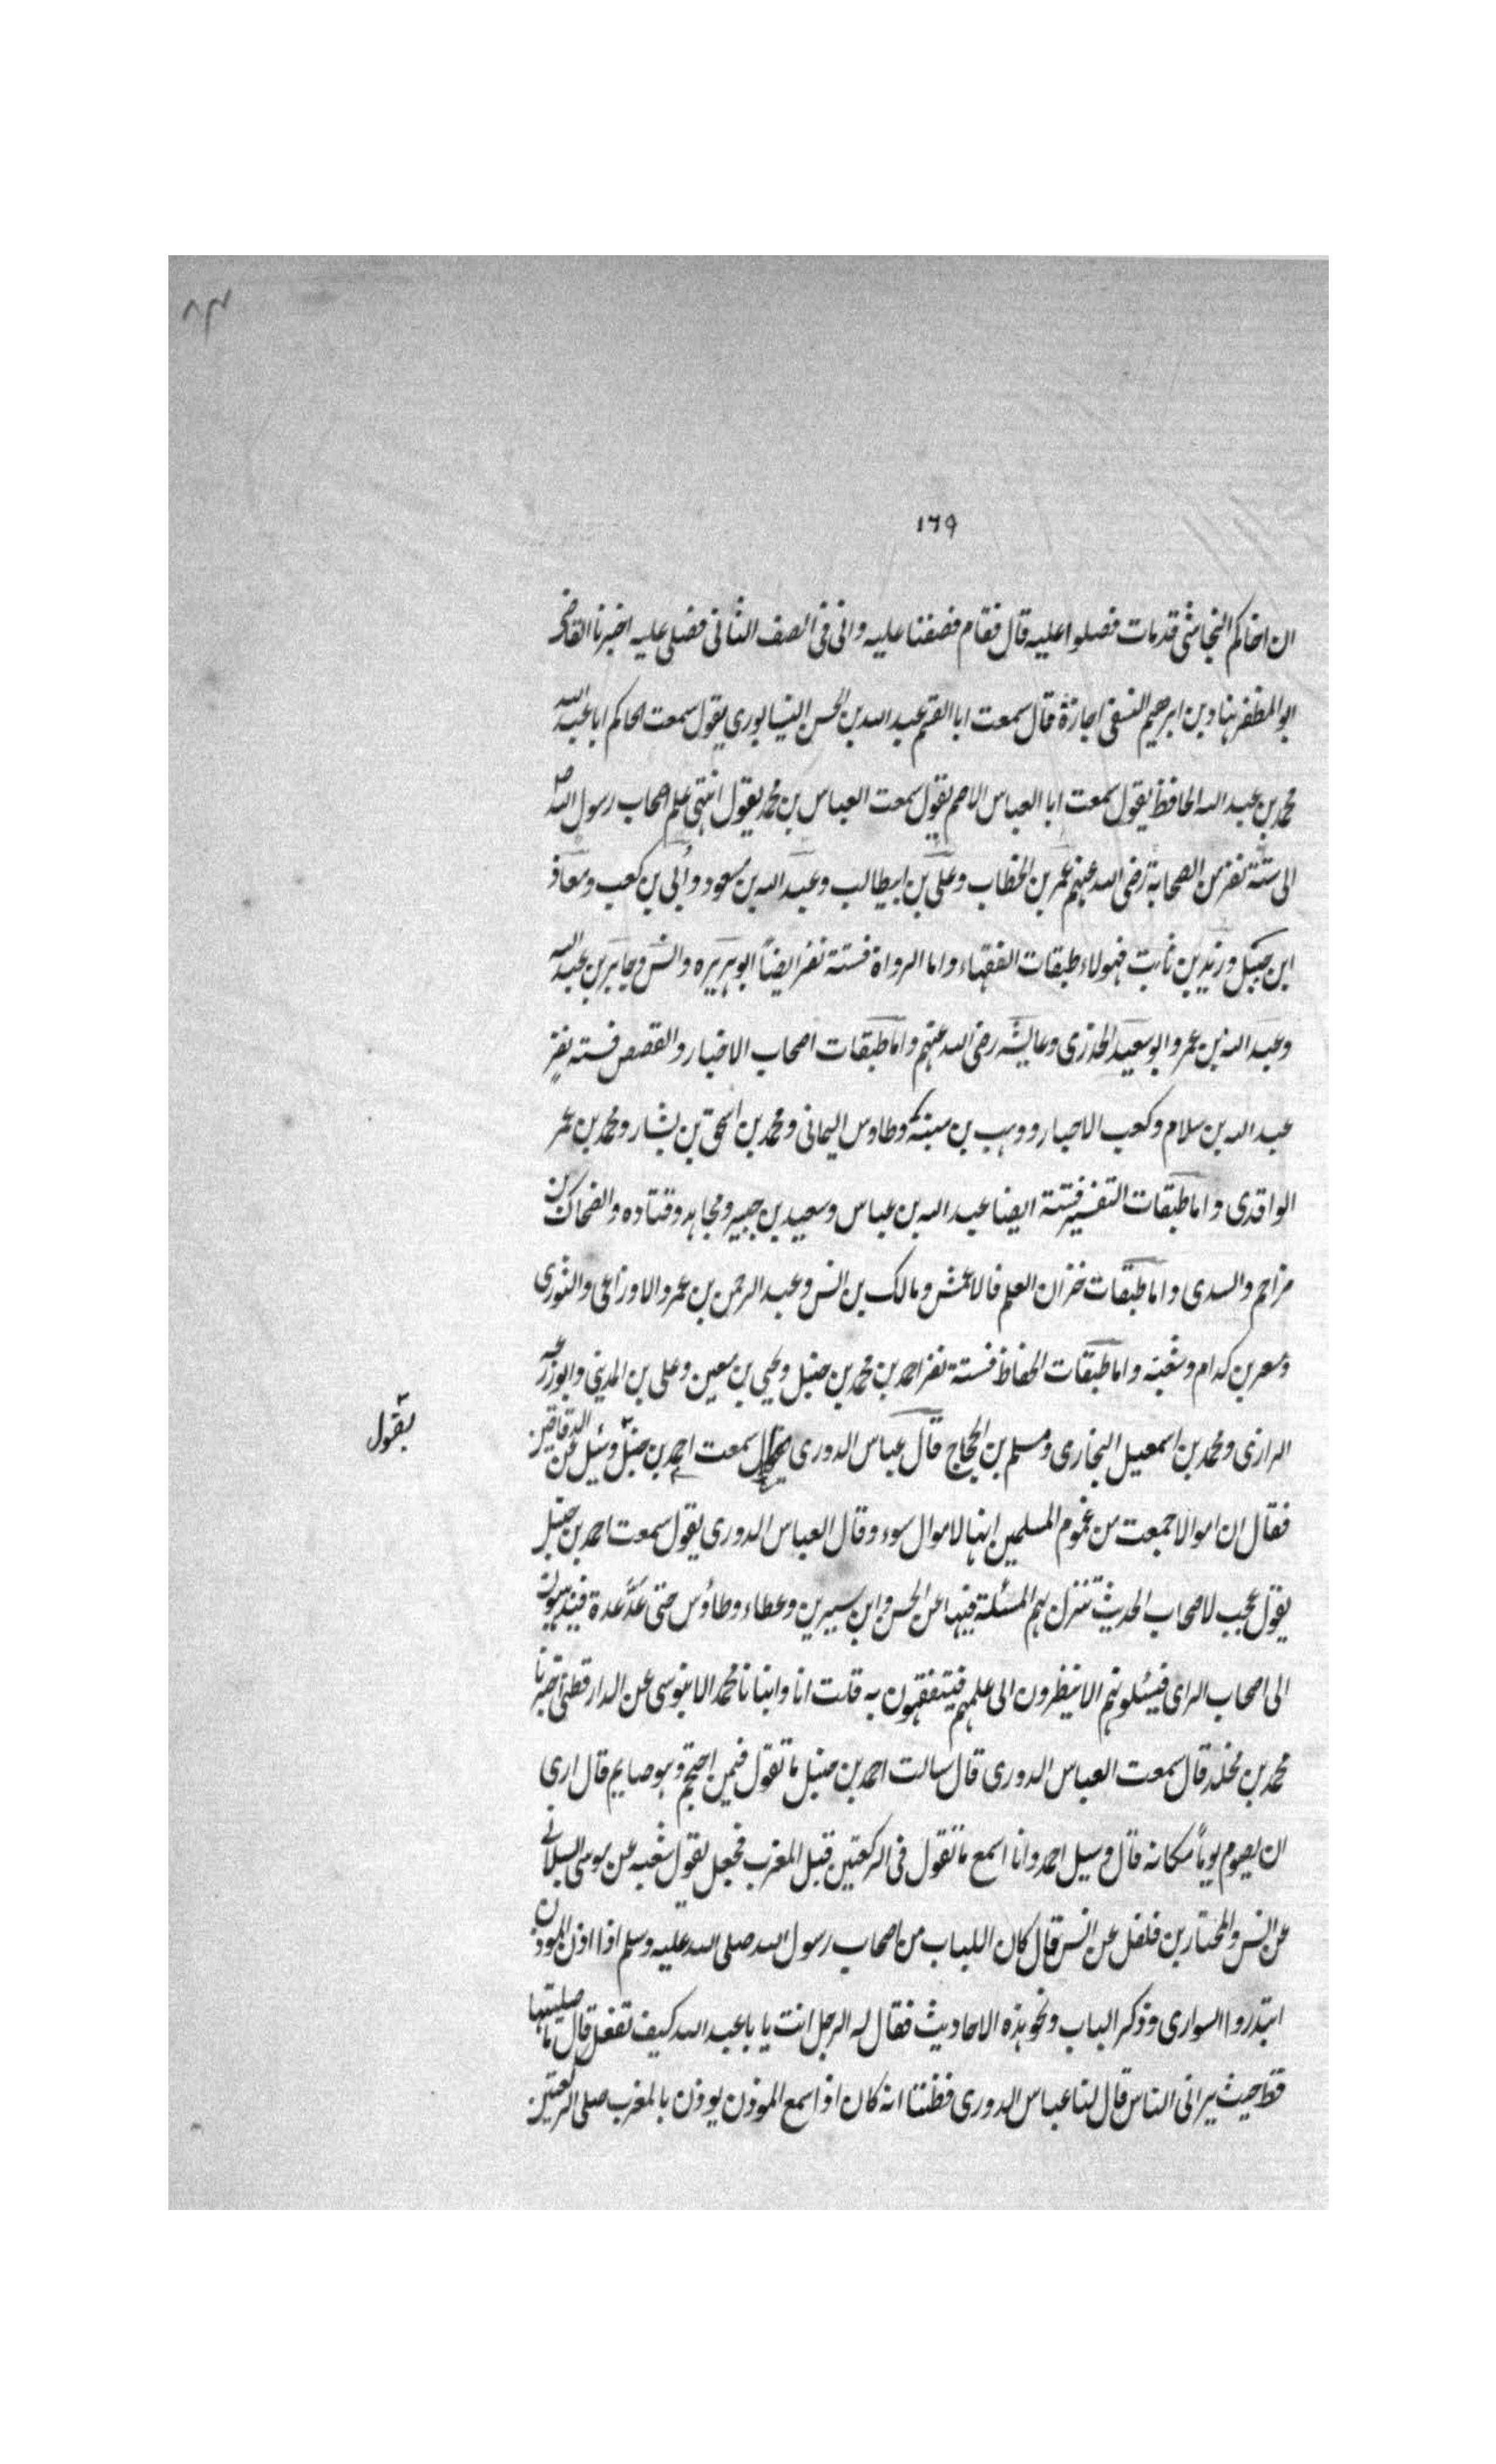 ١٦٩
ان اخاكم النجاشى قد مات فصلوا عليه قال فقام فصففنا عليه وانى فى الصف الثانى فصلى عليه اخبرنا القاضى
ابو المظفر هناد بن ابرهيم النسفى اجازة قال سمعت ابا القسم عبد الله بن الحسن النيسابورى يقول سمعت الحاكم ابا عبد الله
محمد بن عبد الله الحافظ يقول سمعت ابا العباس الاصم يقول سمعت العباس بن محمد يقول انتهى علم اصحاب رسول الله ص
الى ستة نفر من الصحابة رضى الله عنهم عمر بن الخطاب وعلى بن ابيطالب وعبد الله بن مسعود وأبى بن كعب ومعاذ
ابن جبل وزيد بن ثابت فهولاء طبقات الفقهاء واما الرواة فستة نفر ايضاً ابو هريره وانس وجابر بن عبد الله
وعبد الله بن عمر وابو سعيد الخدرى وعايشه رضى الله عنهم واما طبقات اصحاب الاخبار والقصص فسته نفر
عبد الله بن سلام وكعب الاحبار ووهب بن منبه وطاوس اليمانى ومحمد بن اسحق بن يشار ومحمد بن عمر
الواقدى واما طبقات التفسير فستة ايضا عبد الله بن عباس وسعيد بن جبير ومجاهد وقتاده والضحاك بن
مزاحم والسدى واما طبقات خزان العلم فالاعمش ومالك بن انس وعبد الرحمن بن عمر والاوزاعى والثورى
ومسعر بن كدام وشعبه واما طبقات الحفاظ فستة نفر احمد بن محمد بن حنبل ويحيى بن معين وعلى بن المدينى وابو زرعه
الرازى ومحمد بن اسمعيل البخارى ومسلم بن الحجاج قال عباس الدورى سمعت احمد بن حنبل وسئل عن الدقاقين
يقول
فقال ان اموالا جمعت من غموم المسلمين انها لاموال سوء وقال العباس الدورى يقول سمعت احمد بن حنبل
يقول عجب لاصحاب الحديث تنزل بهم المسئلة فيها عن الحسن وابن سيرين وعطاء وطاؤس حتى عدّ عدة فيذهبون
الى اصحاب الراى فيسئلونهم الا ينظرون الى علمهم فيتفقهون به قلت انا وانبانا محمد الابنوسى عن الدارقطنى اخبرنا
محمد بن مخلد قال سمعت العباس الدورى قال سالت احمد بن حنبل ما تقول فيمن احتجم وهو صايم قال ارى
ان يصوم يوماً مكانه قال وسيل احمد وانا اسمع ما تقول فى الركعتين قبل المغرب فجعل يقول شعبه عن موسى السيلانے
عن انس والمختار بن فلفل عن انس قال كان اللباب من اصحاب رسول الله صلى الله عليه وسلم اذا اذن الموذن
ابتدروا السوارى وذكر الباب ونحو هذه الاحاديث فقال له الرجل انت يا با عبد الله كيف تفعل قال ما صليتها
قط حيث يرانى الناس قال لنا عباس الدورى فظننا انه كان اذا سمع الموذن يوذن بالمغرب صلى الركعتين